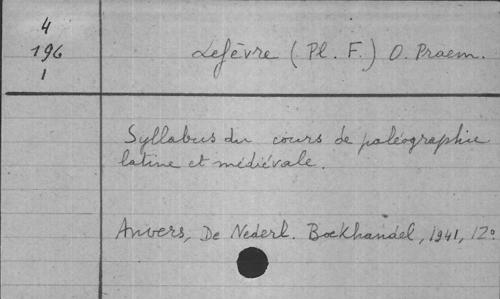 4
196
1
Lefèvre (Pl. F.) O. Praem.
Syllabus du cours de paléographie
latine et médiévale.
Anvers, De Nederl. Boekhandel, 1941, 12º